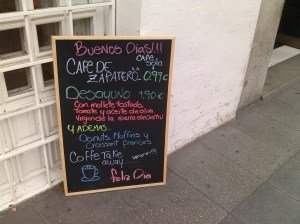 Buenos Días!!!
CAFE solo
CAFE DE ZAPATERO 0.99€
Desayuno 1,90€
Con mollete tostado,
Tomate y aceite de oliva
Virgen de la sierra de
Y ADEMAS
Donuts, Muffins y
Croissant frances
Coffe Take
away.....
Feliz Dia